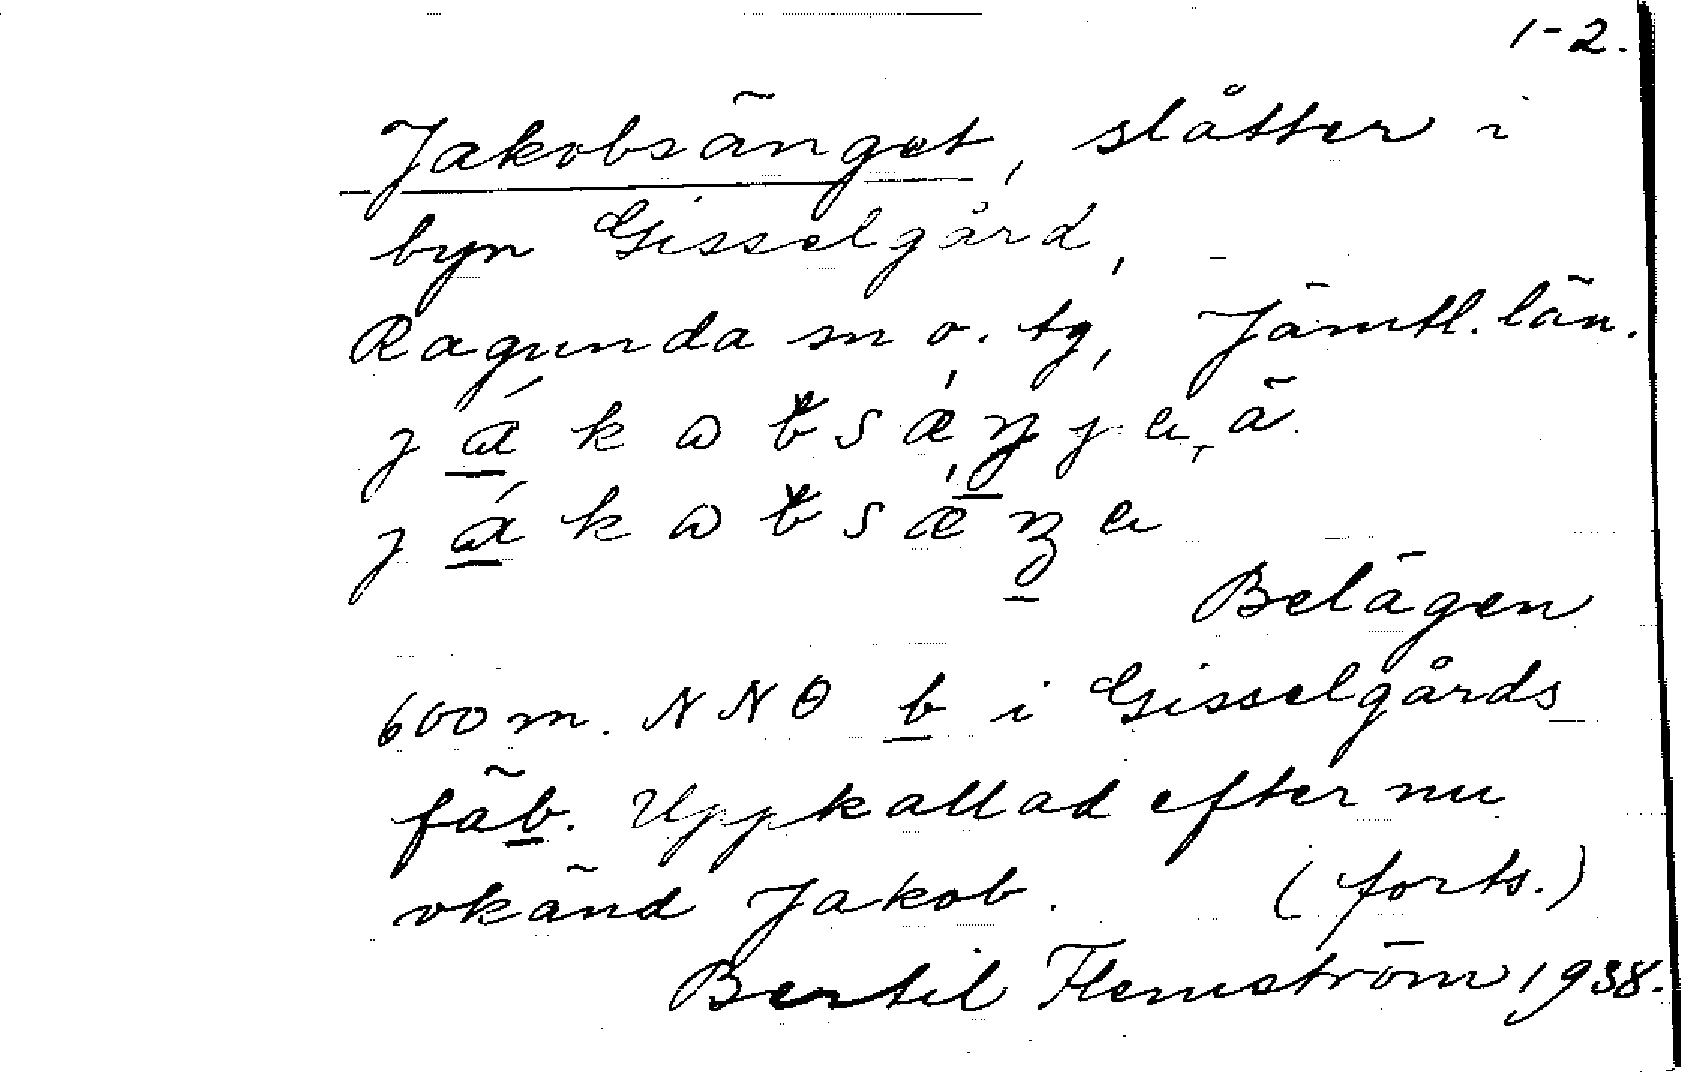 1-2.
Jakobsänget, slåtter i
byn Gisselgård,
Ragunda sn o. tg, Jämtl. län.
600 m. NNO b i Gisselgårds
fäb. Uppkallad efter nu
okänd Jakob. (forts.)
Belägen
Bertil Flemström 1938.